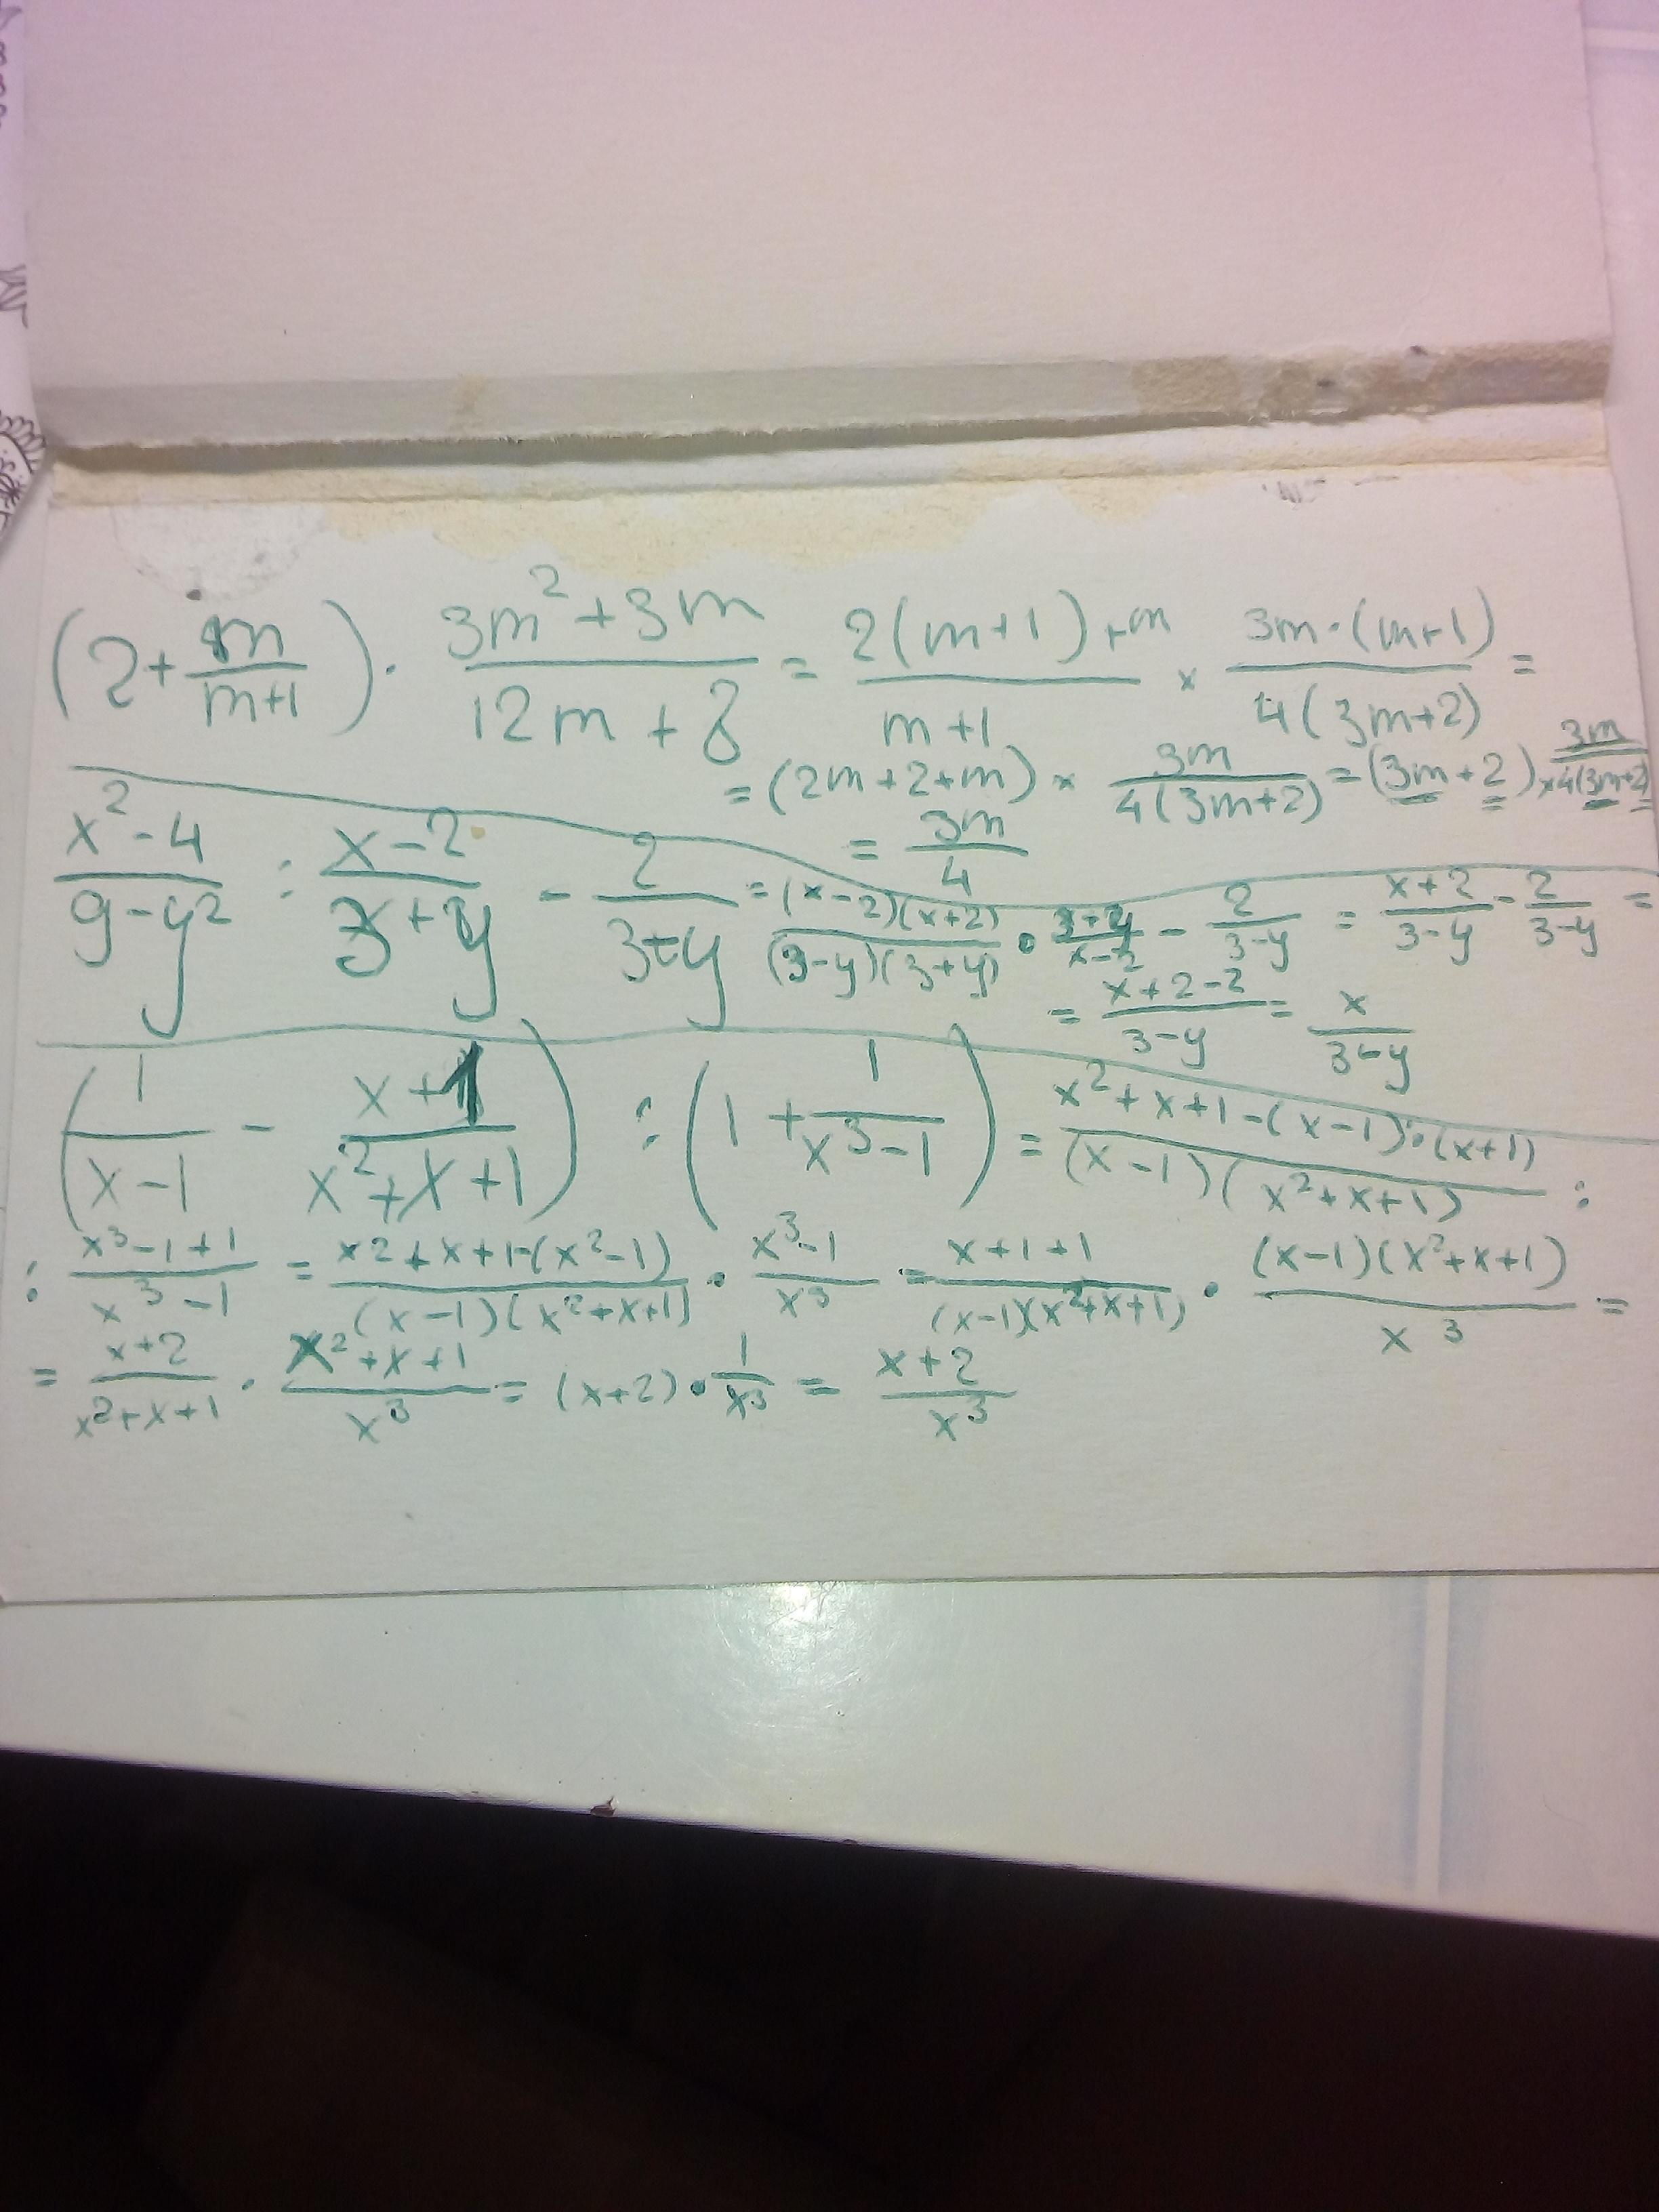 (2 + m/(m+1)) · (3m² + 3m)/(12m + 8) = (2(m+1) + m)/(m+1) × (3m·(m+1))/(4(3m+2)) =
= (2m+2+m) × 3m/(4(3m+2)) = (3m+2) × 3m/(4(3m+2))
= 3m/4
(x² - 4)/(9 - y²) : (x - 2)/(3 + y) - 2/(3 - y) = ((x-2)(x+2))/((3-y)(3+y)) · (3+y)/(x-2) - 2/(3-y) = (x+2)/(3-y) - 2/(3-y) =
= (x+2-2)/(3-y) = x/(3-y)
(1/(x-1) - (x+1)/(x²+x+1)) : (1 + 1/(x³-1)) = (x²+x+1-(x-1)·(x+1))/((x-1)(x²+x+1)) :
: (x³-1+1)/(x³-1) = (x²+x+1-(x²-1))/((x-1)(x²+x+1)) · (x³-1)/x³ = (x+1+1)/((x-1)(x²+x+1)) · ((x-1)(x²+x+1))/x³ =
= (x+2)/(x²+x+1) · (x²+x+1)/x³ = (x+2) · 1/x³ = (x+2)/x³